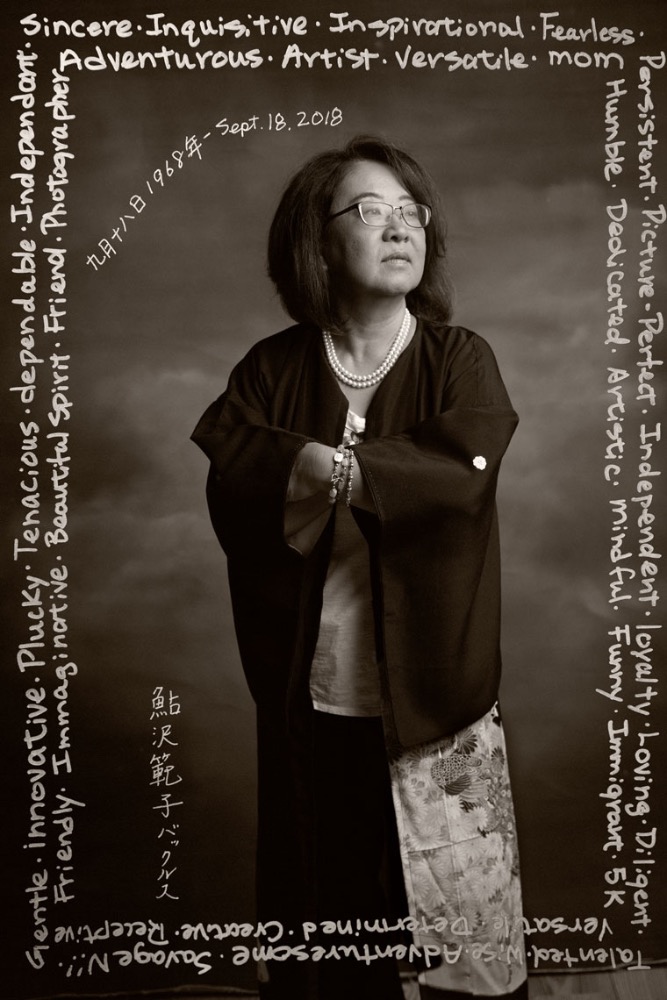 Sincere · Inquisitive · Inspirational · Fearless ·
Adventurous · Artist · Versatile · mom
Persistent · Picture · Perfect · Independent · loyalty · Loving · Diligent ·
Humble · Dedicated · Artistic · mindful · Funny · Immigrant · 5K
Talented · wise · Adventuresome · Savage N!!
Versatile · Determined · Creative · Receptive
Gentle · innovative · Plucky · Tenacious · dependable · Independant ·
Friendly · Immaginative · Beautiful Spirit · Friend · Photographer
九月十八日1968年 - Sept. 18. 2018
鮎沢範子バックルス